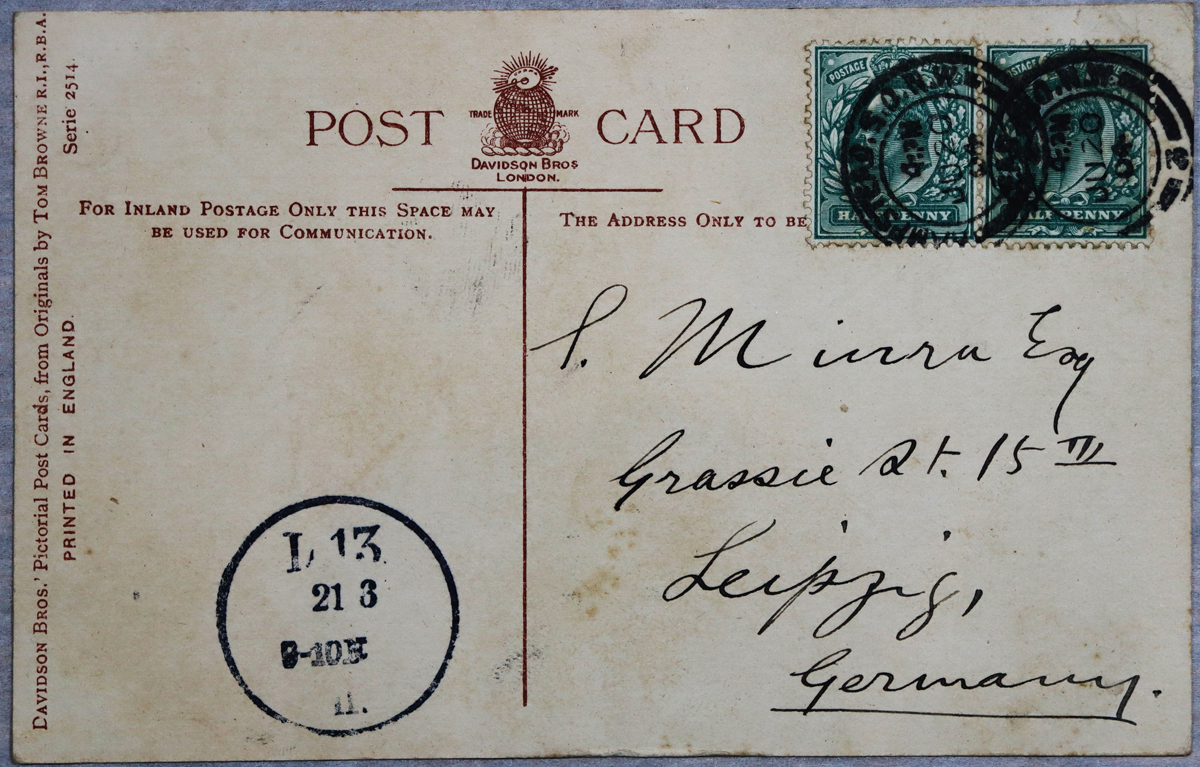 DAVIDSON BROS.' Pictorial Post Cards, from Originals by TOM BROWNE R.I., R.B.A.
Serie 2514.
PRINTED IN ENGLAND.
POST CARD
TRADE MARK
DAVIDSON BROS
LONDON.
FOR INLAND POSTAGE ONLY THIS SPACE MAY
BE USED FOR COMMUNICATION.
THE ADDRESS ONLY TO BE
POSTAGE
HALFPENNY
HALFPENNY
S.O.N.W.
JU 20
JU 20
Esq
Grassie St. 15 III
Leipzig,
Germany.
L 13
21 6
II.